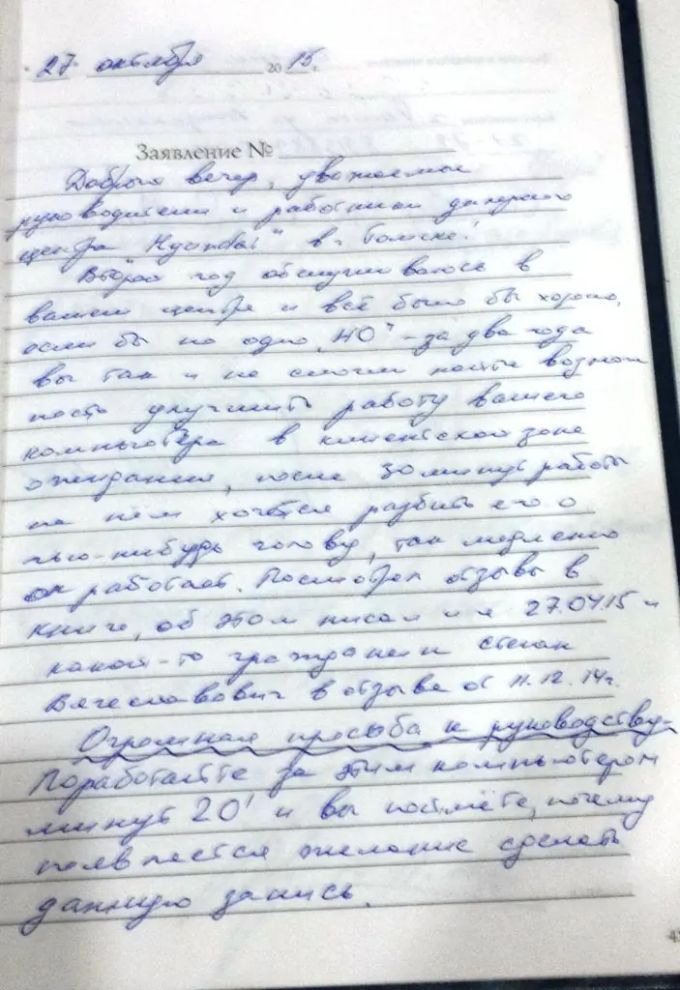 27 октября 2015 г.
Заявление №
Доброго вечер, уважаемые
руководители и работники дилерского
центра "Hyundai" в г. Томске!
Второй год обслуживаюсь в
вашем центре и всё было бы хорошо,
если бы не одно "НО" - за два года
вы так и не смогли найти возмож
ность улучшить работу вашего
компьютера в клиентской зоне
ожидания, после 30 минут работы
на нём хочется разбить его о
чью-нибудь голову, так медленно
он работает. Посмотрел отзывы в
книге, об этом писал и я 27.04.15 и
какой-то гражданин Степан
Вячеславович в отзыве от 11.12.14г.
Огромная просьба к руководству-
Поработайте за этим компьютером
минут 20' и вы поймёте, почему
появляется желание сделать
данную запись.